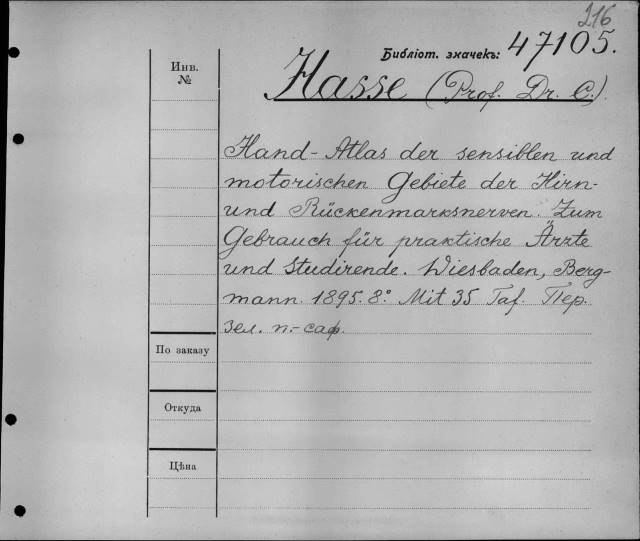 216
Библіот. значекъ: 47105.
Инв.
№
Hasse (Prof. Dr. C.).
Hand-Atlas der sensiblen und
motorischen Gebiete der Hirn-
und Rückenmarksnerven. Zum
Gebrauch für praktische Ärzte
und Studirende. Wiesbaden, Berg-
mann. 1895. 8º. Mit 35 Taf. Пер.
зел. п.-саф.
По заказу
Откуда
Цѣна